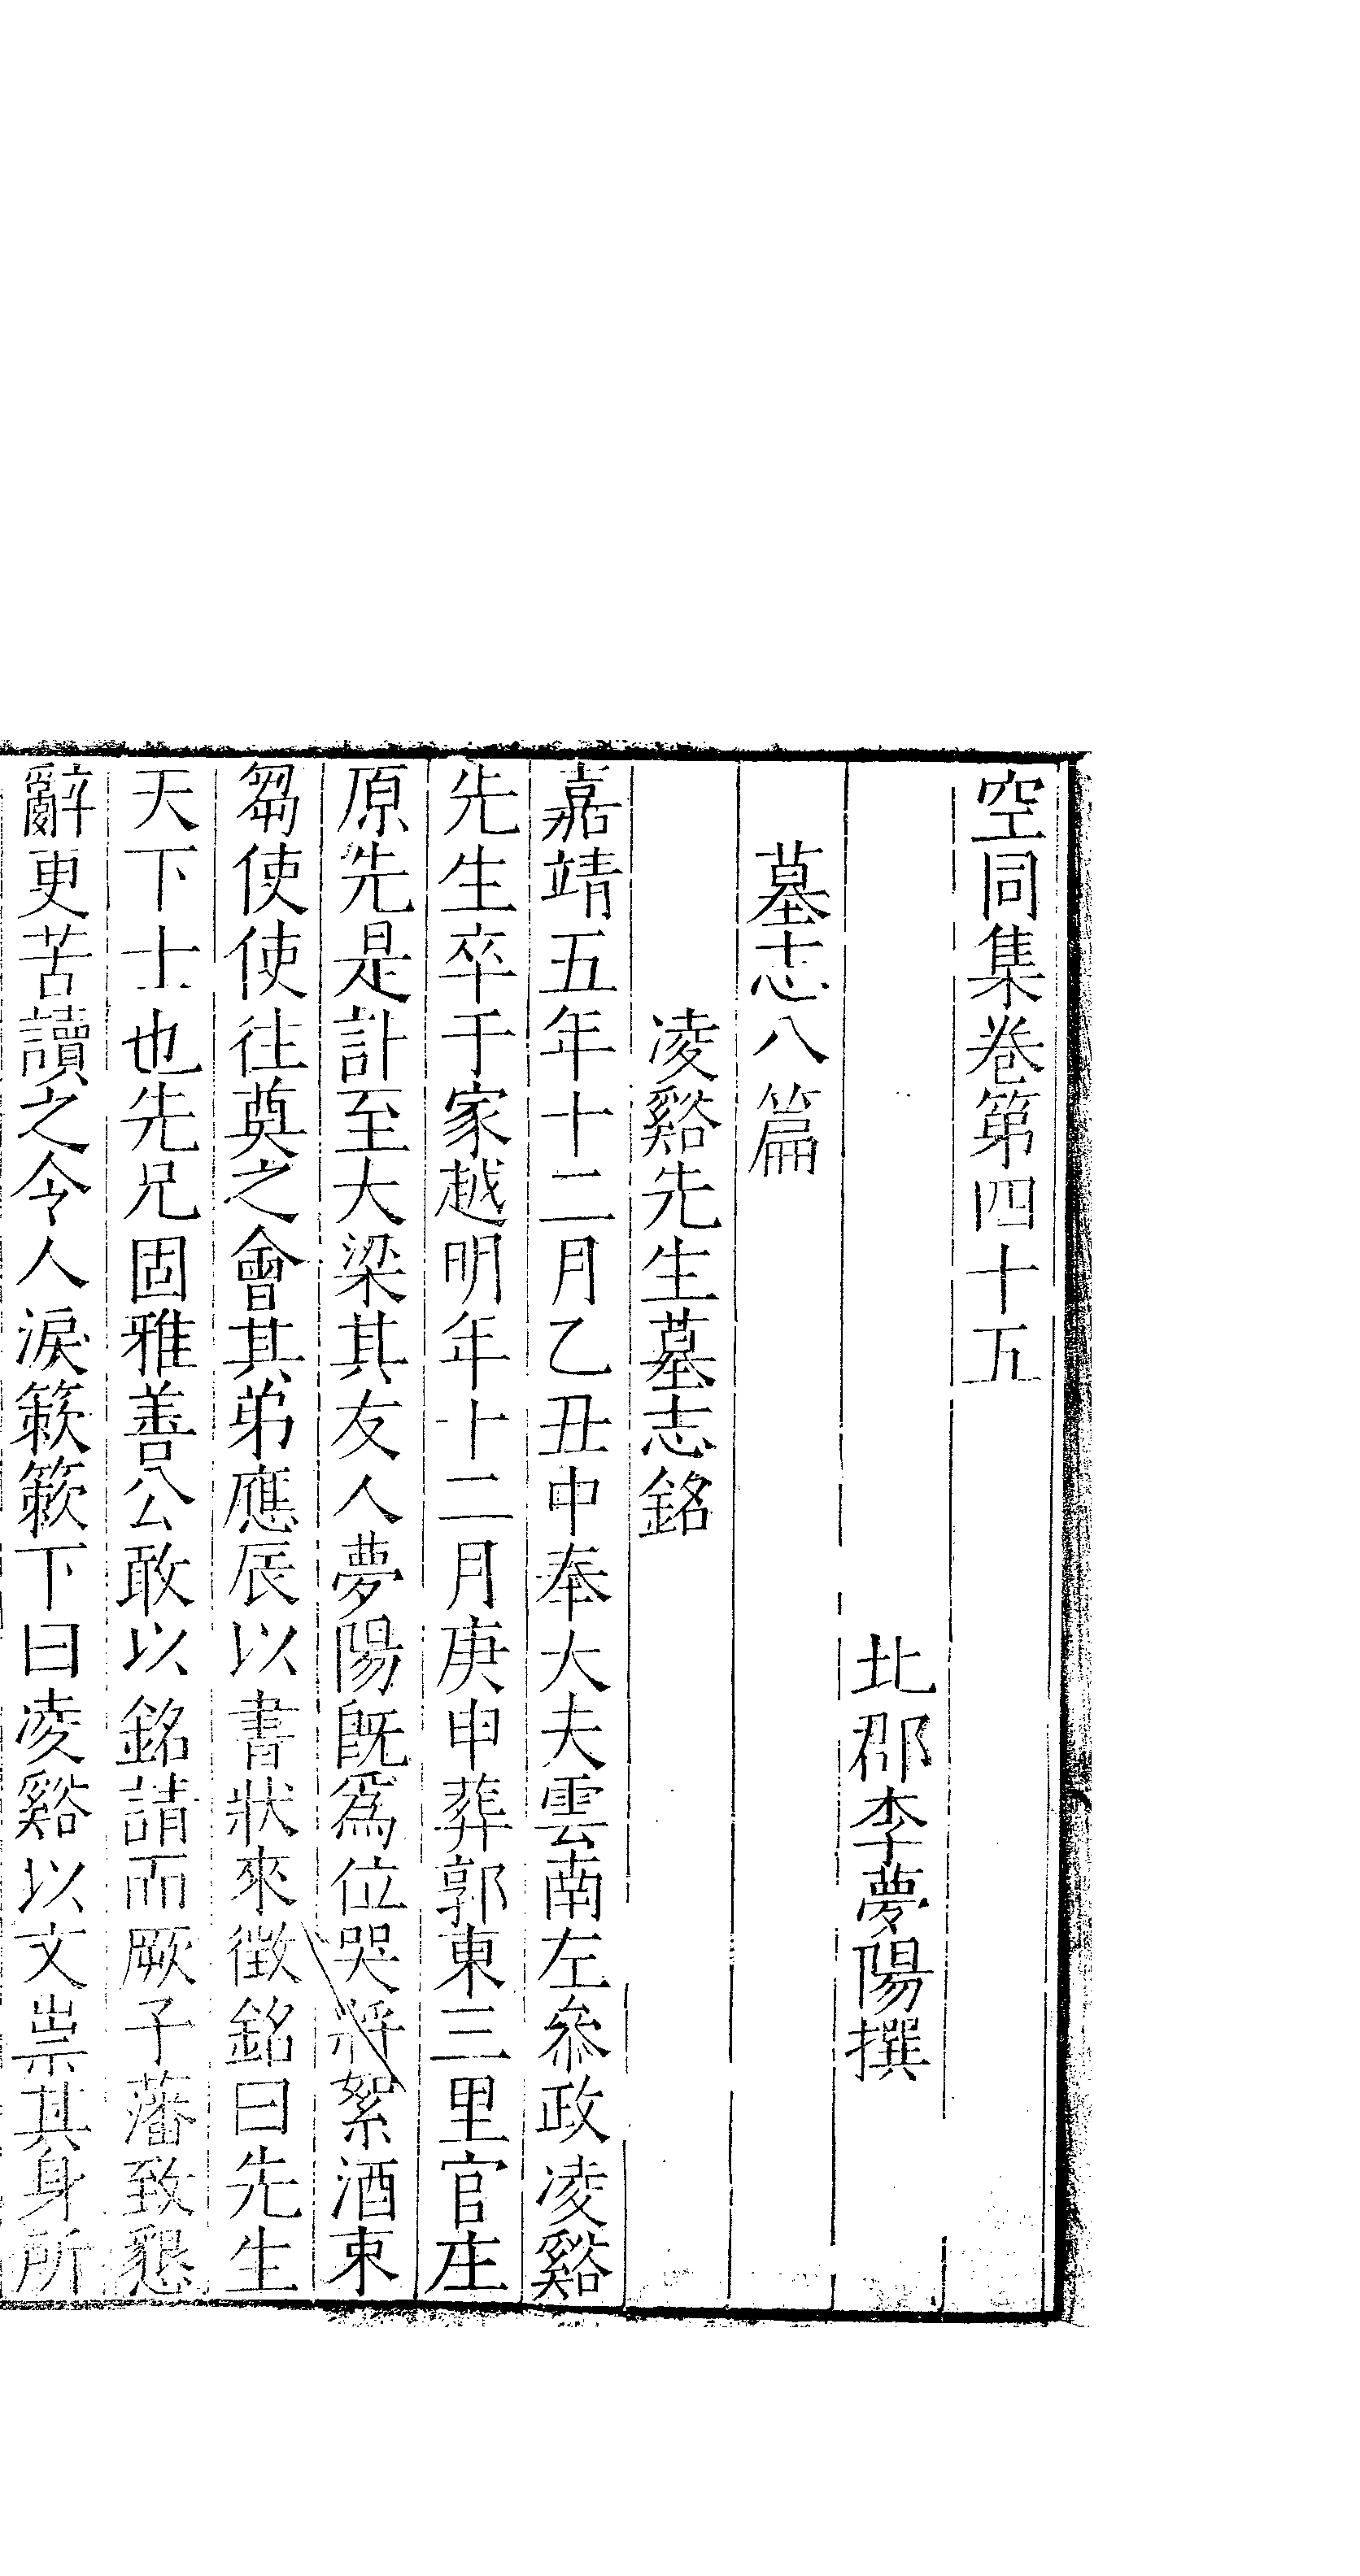 空同集卷第四十五
北郡李夢陽撰
墓志八篇
凌谿先生墓志銘
嘉靖五年十二月乙丑中奉大夫雲南左叅政凌谿
先生卒于家越明年十二月庚申葬郭東三里官庄
原先是訃至大梁其友人夢陽旣爲位哭將絮酒束
芻使使往奠之會其弟應辰以書狀來徵銘曰先生
天下士也先兄固雅善公敢以銘請而厥子藩致懇
辭更苦讀之令人淚簌簌下曰凌谿以文祟其身所